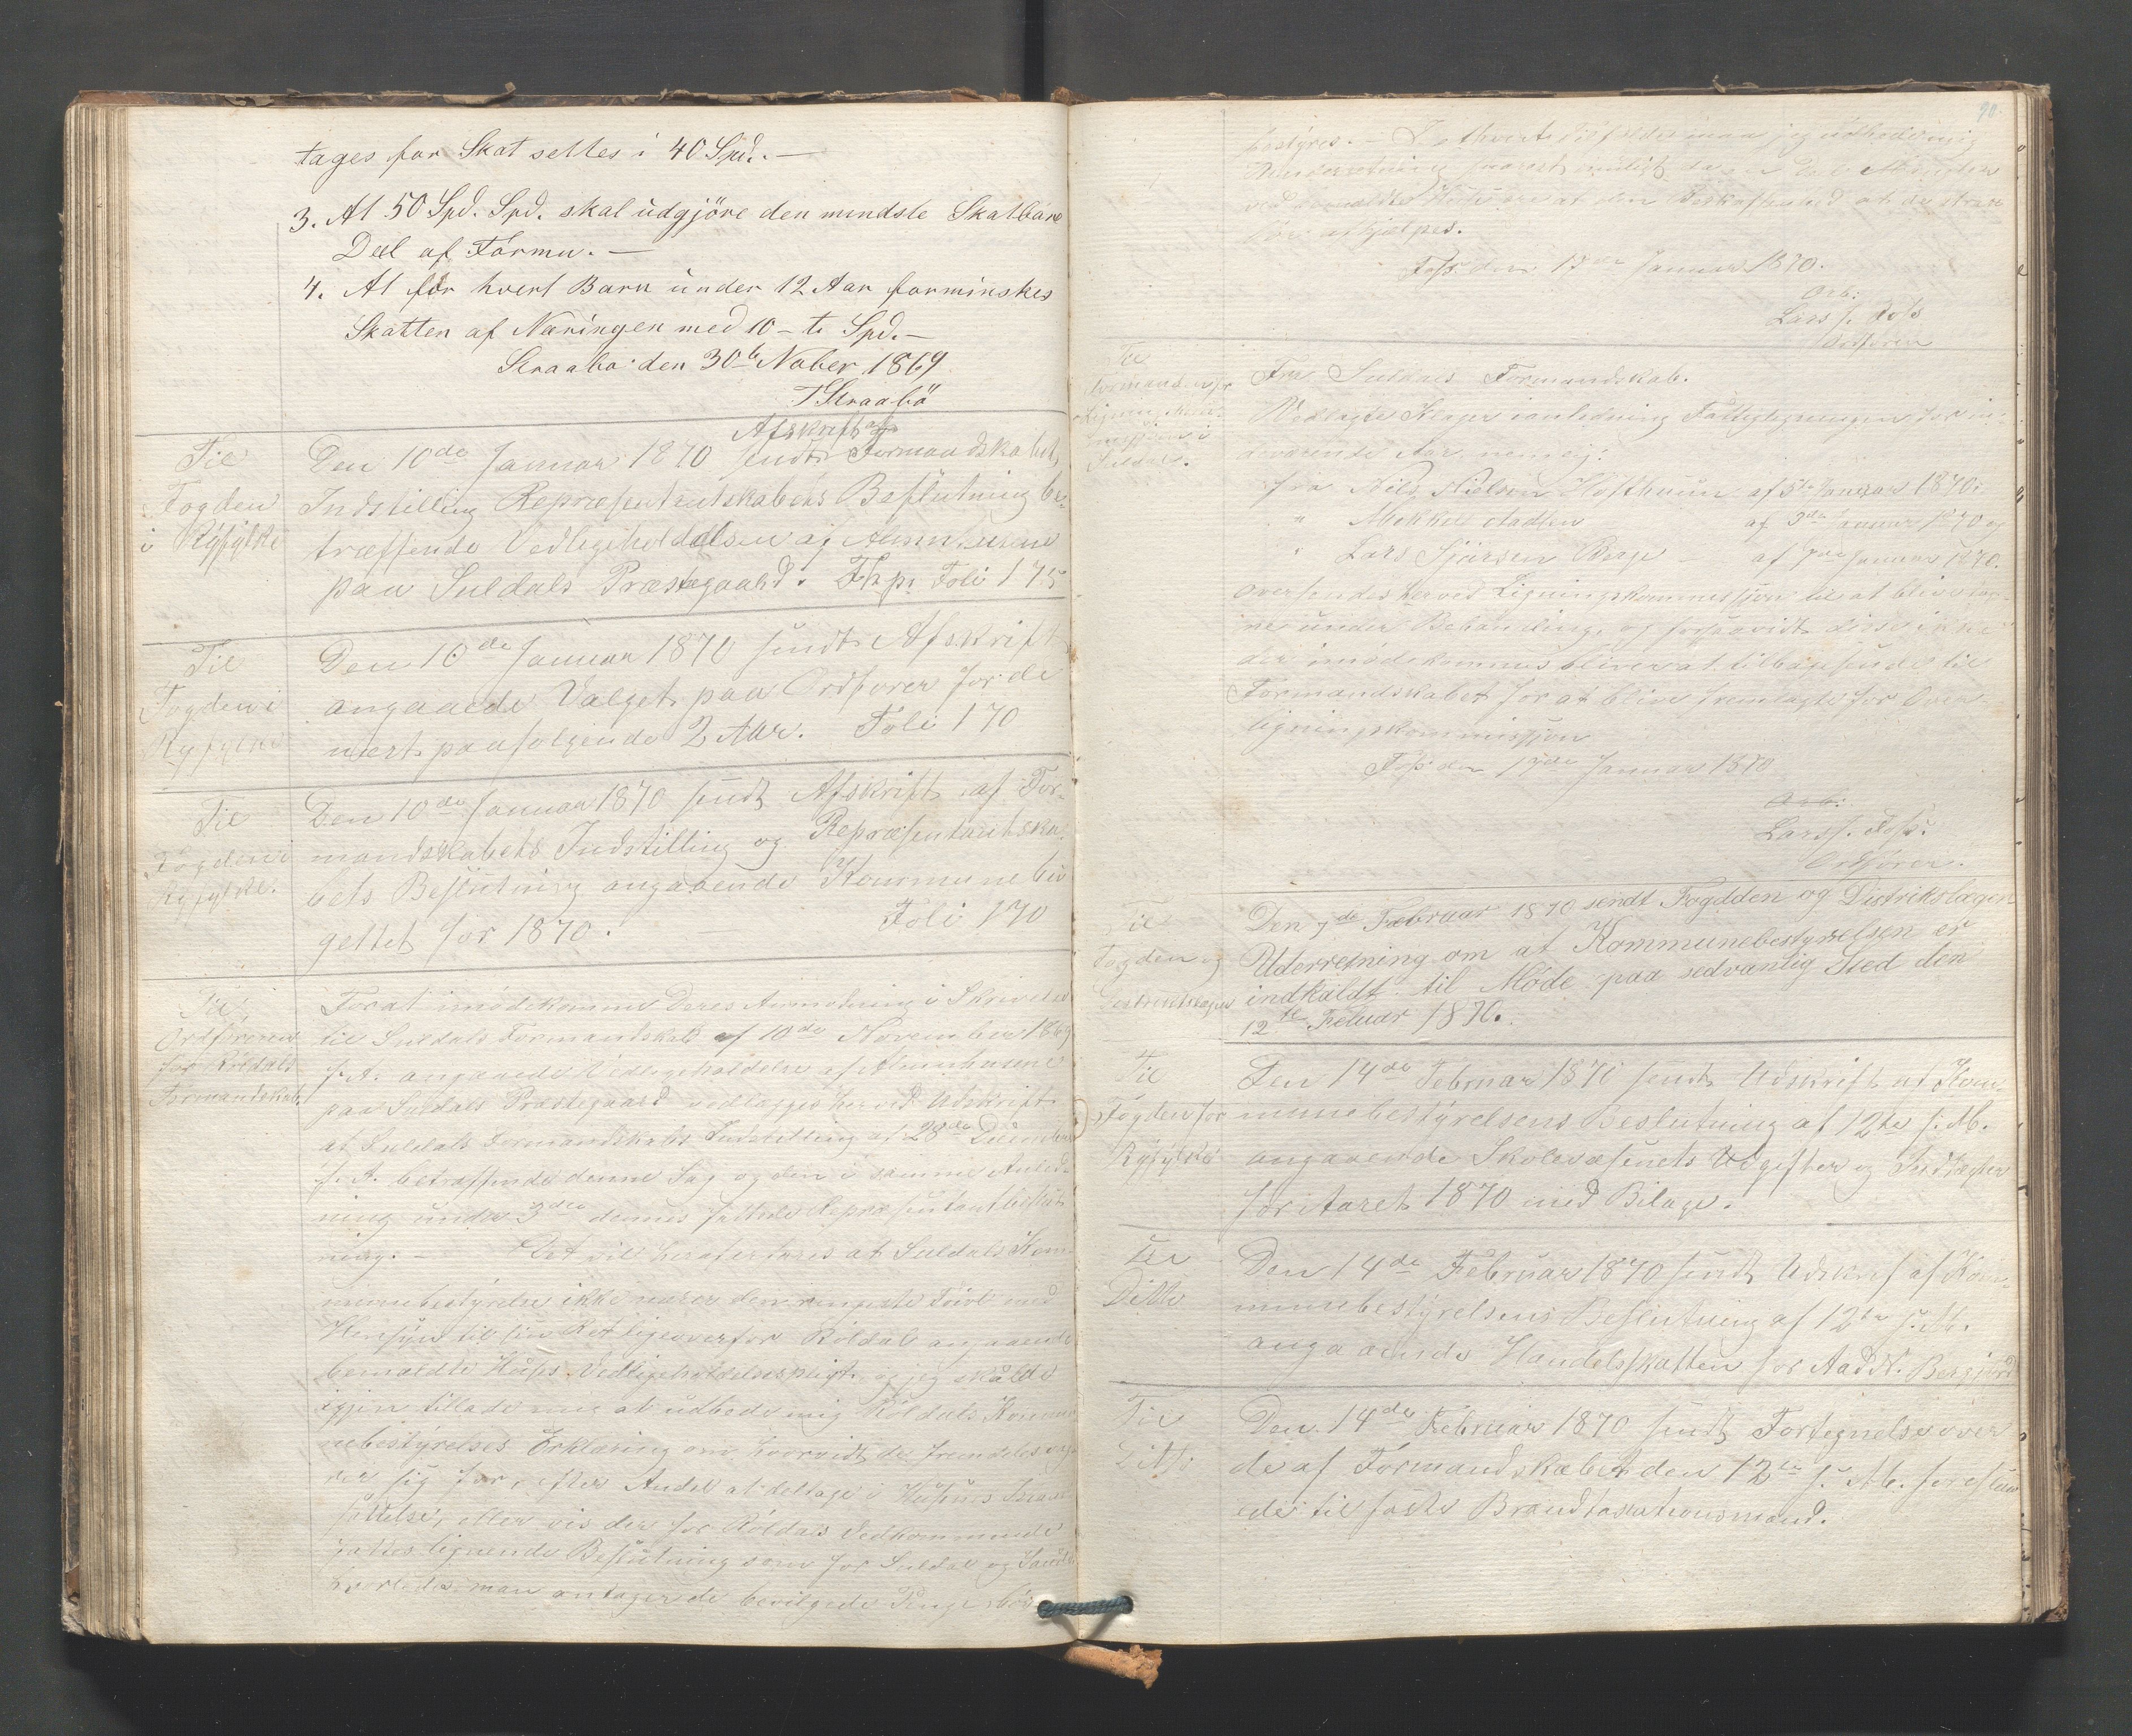 tages for Skat settes i 40 Spd. —
3. At 50 Spd. Spd. skal udgjöre den mindste Skatbare
Deel af Formu. —
4. At for hvert Barn under 12 Aar forminskes
Skatten af Næringen med 10 - ti Spd. —
Straabø den 30te Nober 1869
T Straabö
Til
Fogden
i Ryfylke
Afskrift af
Den 10de Januar 1870 sendt Formandskabets
Indstilling Repræsentantskabets Beslutning be-
træffende Vedligeholdelsen af
paa Suldals Præstegaard. Fhp. Foli 175
Til
Fogden i
Ryfylke
Den 10de Januar 1870 sendt Afskrift
angaaede Valget paa Ordförer for de
nært paafolgende 2 Aar. Foli 170
Til
Fogden i
Ryfylke.
Den 10de Januar 1870 sendt Afskrift af For-
mandskabets Indstilling og Repræsentantska-
bets Beslutning angaaende Kommunebud
gettet for 1870. Foli 170
Til
Ordföreren
for Röldals
Formandskab.
For at imödekomme Deres Anmodning i Skrivelse
til Suldals Formandskab af 10de November 1869
f. A. angaaede Vedligeholdelse af
paa Suldals Præstegaard vedlægges herved Udskrift
af Suldals Formandskabs Indstilling af 28de December
f. A. betræffende denne Sag og den i samme Anled-
ning under 3die dennes fattede Repræsentantbeslut-
ning. — Det vil heraf erfares at Suldals Kom-
munebestyrelse ikke nærer den ringeste Tvivl med
Hensyn til sin Ret ligeoverfor Röldal angaaende
bemældte Huses Vedligeholdelsespligt og jeg skulde
igjen tillade mig at udbede mig Röldals Kommu-
nebestyrelses Erklæring om hvorvidt de fremdeles
sig for, efter Andel at deltage i Husenes
sættelse, eller vis der for Röldals Vedkommende
fattes lignende Beslutning som for Suldal og Sand
hvorledes man antager de bevilgede Penge bör
90.
bestyres. — I ethvert Tilfælde maa jeg udbede mig
Underretning snarest muligt da
ved bemældte Huse ere af den Beskaffenhed at de strax
bör afhjælpes.
Foss den 17de Januar 1870.
Ærb:
Lars J. Foss
Ordförer
Til
Formanden for
Lignins kom-
missjon i
Suldal.
Fra Suldals Formandskab.
Vedlagte Klager i anledning Fattigligningen for in-
deværende Aar, nemlig:
fra Nils Nielsen Hoftuun af 5te Januar 1870.
" Mekkel af 3die Januar 1870 og
" Lars Sjursen Berge — af Januar 1870.
oversendes herved Ligningskommissjon til at blive tag-
ne under Behandling, og forsaavidt disse ikke
der imödekommes bliver at tilbagesende til
Formandskabet for at blive fremlagte for Over-
ligninskommissjon
Foss den 17de Januar 1870
Ærb:
Lars J. Foss.
Ordförer.
Til
Fogden og
Distriktslægen
Den 7de Februar 1870 sendt Fogdden og Distrikslægen
Uderretning om at Kommunebestyrelsen er
indkaldt til Möde paa sedvanlig Sted den
12te Febuar 1870.
Til
Fogden for
Ryfylke
Den 14de Februar 1870 sendt Udskrift af Kom
munebestyrelsens Beslutning af 12te f. M.
angaaende Skolevæsenets Udgifter og Indtægter
for Aaret 1870 med Bilage.
Til
Ditto
Den 14de Februar 1870 sendt Udskrif af Kom-
munebestyrelsens Beslutning af 12te f. M.
angaaende Handelsskatten for
Til
Ditto
Den 14de Februar 1870 sendt Fortegnelse over
de af Formandskabet den 12te f. M. foreslaa
ede til faste Brandtaxationsmænd.